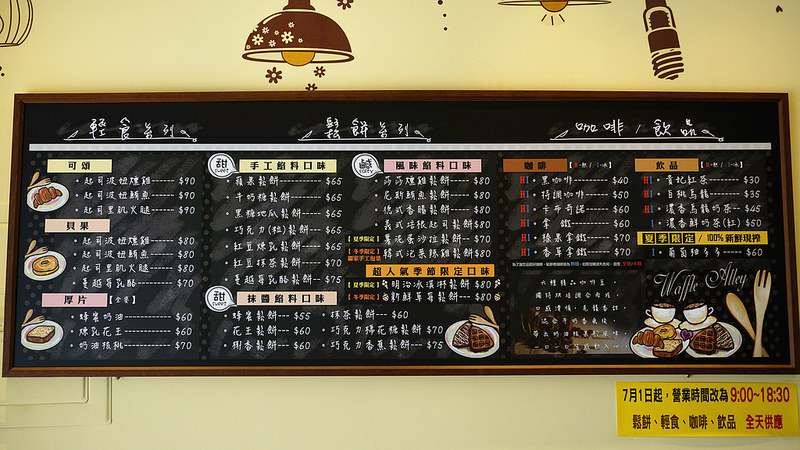 輕食系列
鬆餅系列
咖啡/飲品
可頌
起司波妞燻雞 $90
起司波妞鮪魚 $90
起司里肌火腿 $90
貝果
起司波妞燻雞 $80
起司波妞鮪魚 $80
起司里肌火腿 $80
蔓越莓奶酥 $70
厚片
蜂蜜奶油 $60
煉乳花生 $60
奶油核桃 $70
甜 sweet
手工餡料口味
蘋果鬆餅 $65
牛奶糖鬆餅 $65
黑糖地瓜鬆餅 $65
巧克力(粒)鬆餅 $65
紅豆煉乳鬆餅 $65
紅豆抹茶鬆餅 $70
蔓越莓乳酪鬆餅 $75
甜 sweet
抹醬餡料口味
蜂蜜鬆餅 $55
抹茶鬆餅 $60
花生鬆餅 $60
巧克力棉花糖鬆餅 $70
楓香鬆餅 $60
巧克力香蕉鬆餅 $75
鹹 salty
風味餡料口味
莎莎燻雞鬆餅 $80
尼斯鮪魚鬆餅 $80
德式香腸鬆餅 $80
義式培根起司鬆餅 $80
【夏季限定】薯泥蛋沙拉鬆餅 $80
【冬季限定】韓式泡菜辣雞鬆餅 $80
超人氣季節限定口味
【夏季限定】明治冰淇淋鬆餅 $80
【冬季限定】新鮮草莓鬆餅 $80
咖啡
H I 黑咖啡 $40
H I 特調咖啡 $50
H I 卡布奇諾 $60
I 拿鐵 $60
H I 榛果拿鐵 $70
H I 香草拿鐵 $70
飲品
H I 貴妃紅茶 $30
H I 白桃烏龍 $35
H I 濃香烏龍奶茶 $45
I 濃香鮮奶茶(紅) $50
夏季限定 / 100%新鮮現榨
I 葡萄柚多多 $60
Waffle Alley
7月1日起，營業時間改為9:00~18:30
鬆餅、輕食、咖啡、飲品 全天供應